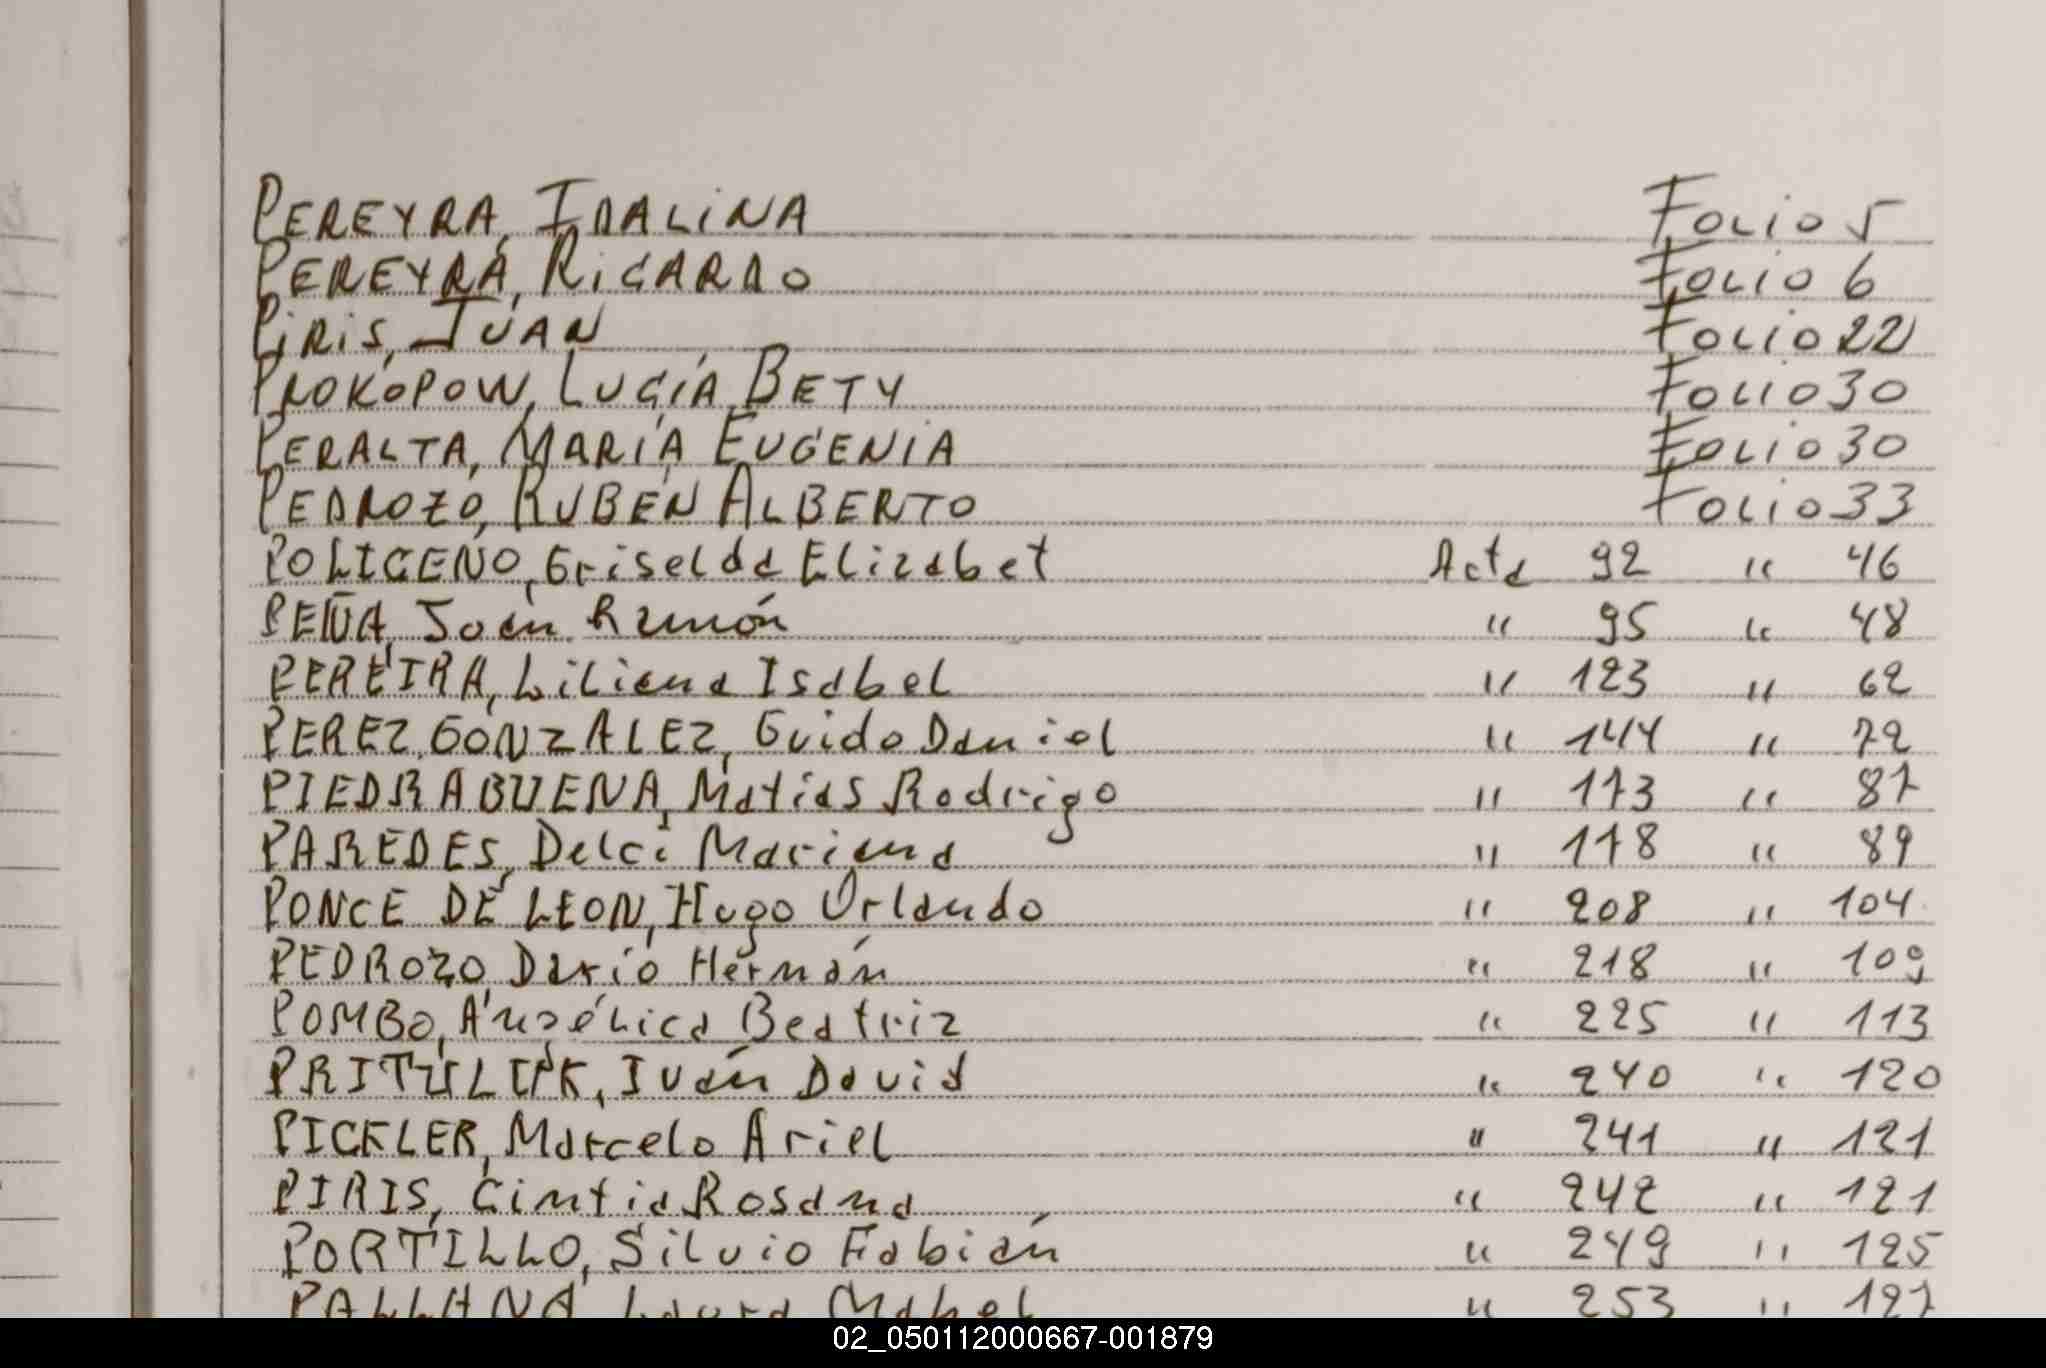 PEREYRA, IDALINA Folio 5
PEREYRA, RICARDO Folio 6
PIRIS, JUAN Folio 22
PROKOPOW, LUCÍA BETY Folio 30
PERALTA, MARÍA EUGENIA Folio 30
PEDROZO, RUBÉN ALBERTO Folio 33
POLICENO, Griselda Elizabet Acta 92 " 46
PEÑA, Juan Ramón " 95 " 48
PEREIRA, Liliana Isabel " 123 " 62
PEREZ GONZALEZ, Guido Daniel " 144 " 72
PIEDRABUENA, Matías Rodrigo " 173 " 87
PAREDES, Delci Mariana " 178 " 89
PONCE DE LEON, Hugo Orlando " 208 " 104
PEDROZO Darío Hernán " 218 " 109
POMBO, Angélica Beatriz " 225 " 113
Iván David " 240 " 120
PICKLER, Marcelo Ariel " 241 " 121
PIRIS, Cintia Rosana " 242 " 121
PORTILLO, Silvio Fabián " 249 " 125
Laura Mabel " 253 " 127
02_050112000667-001879